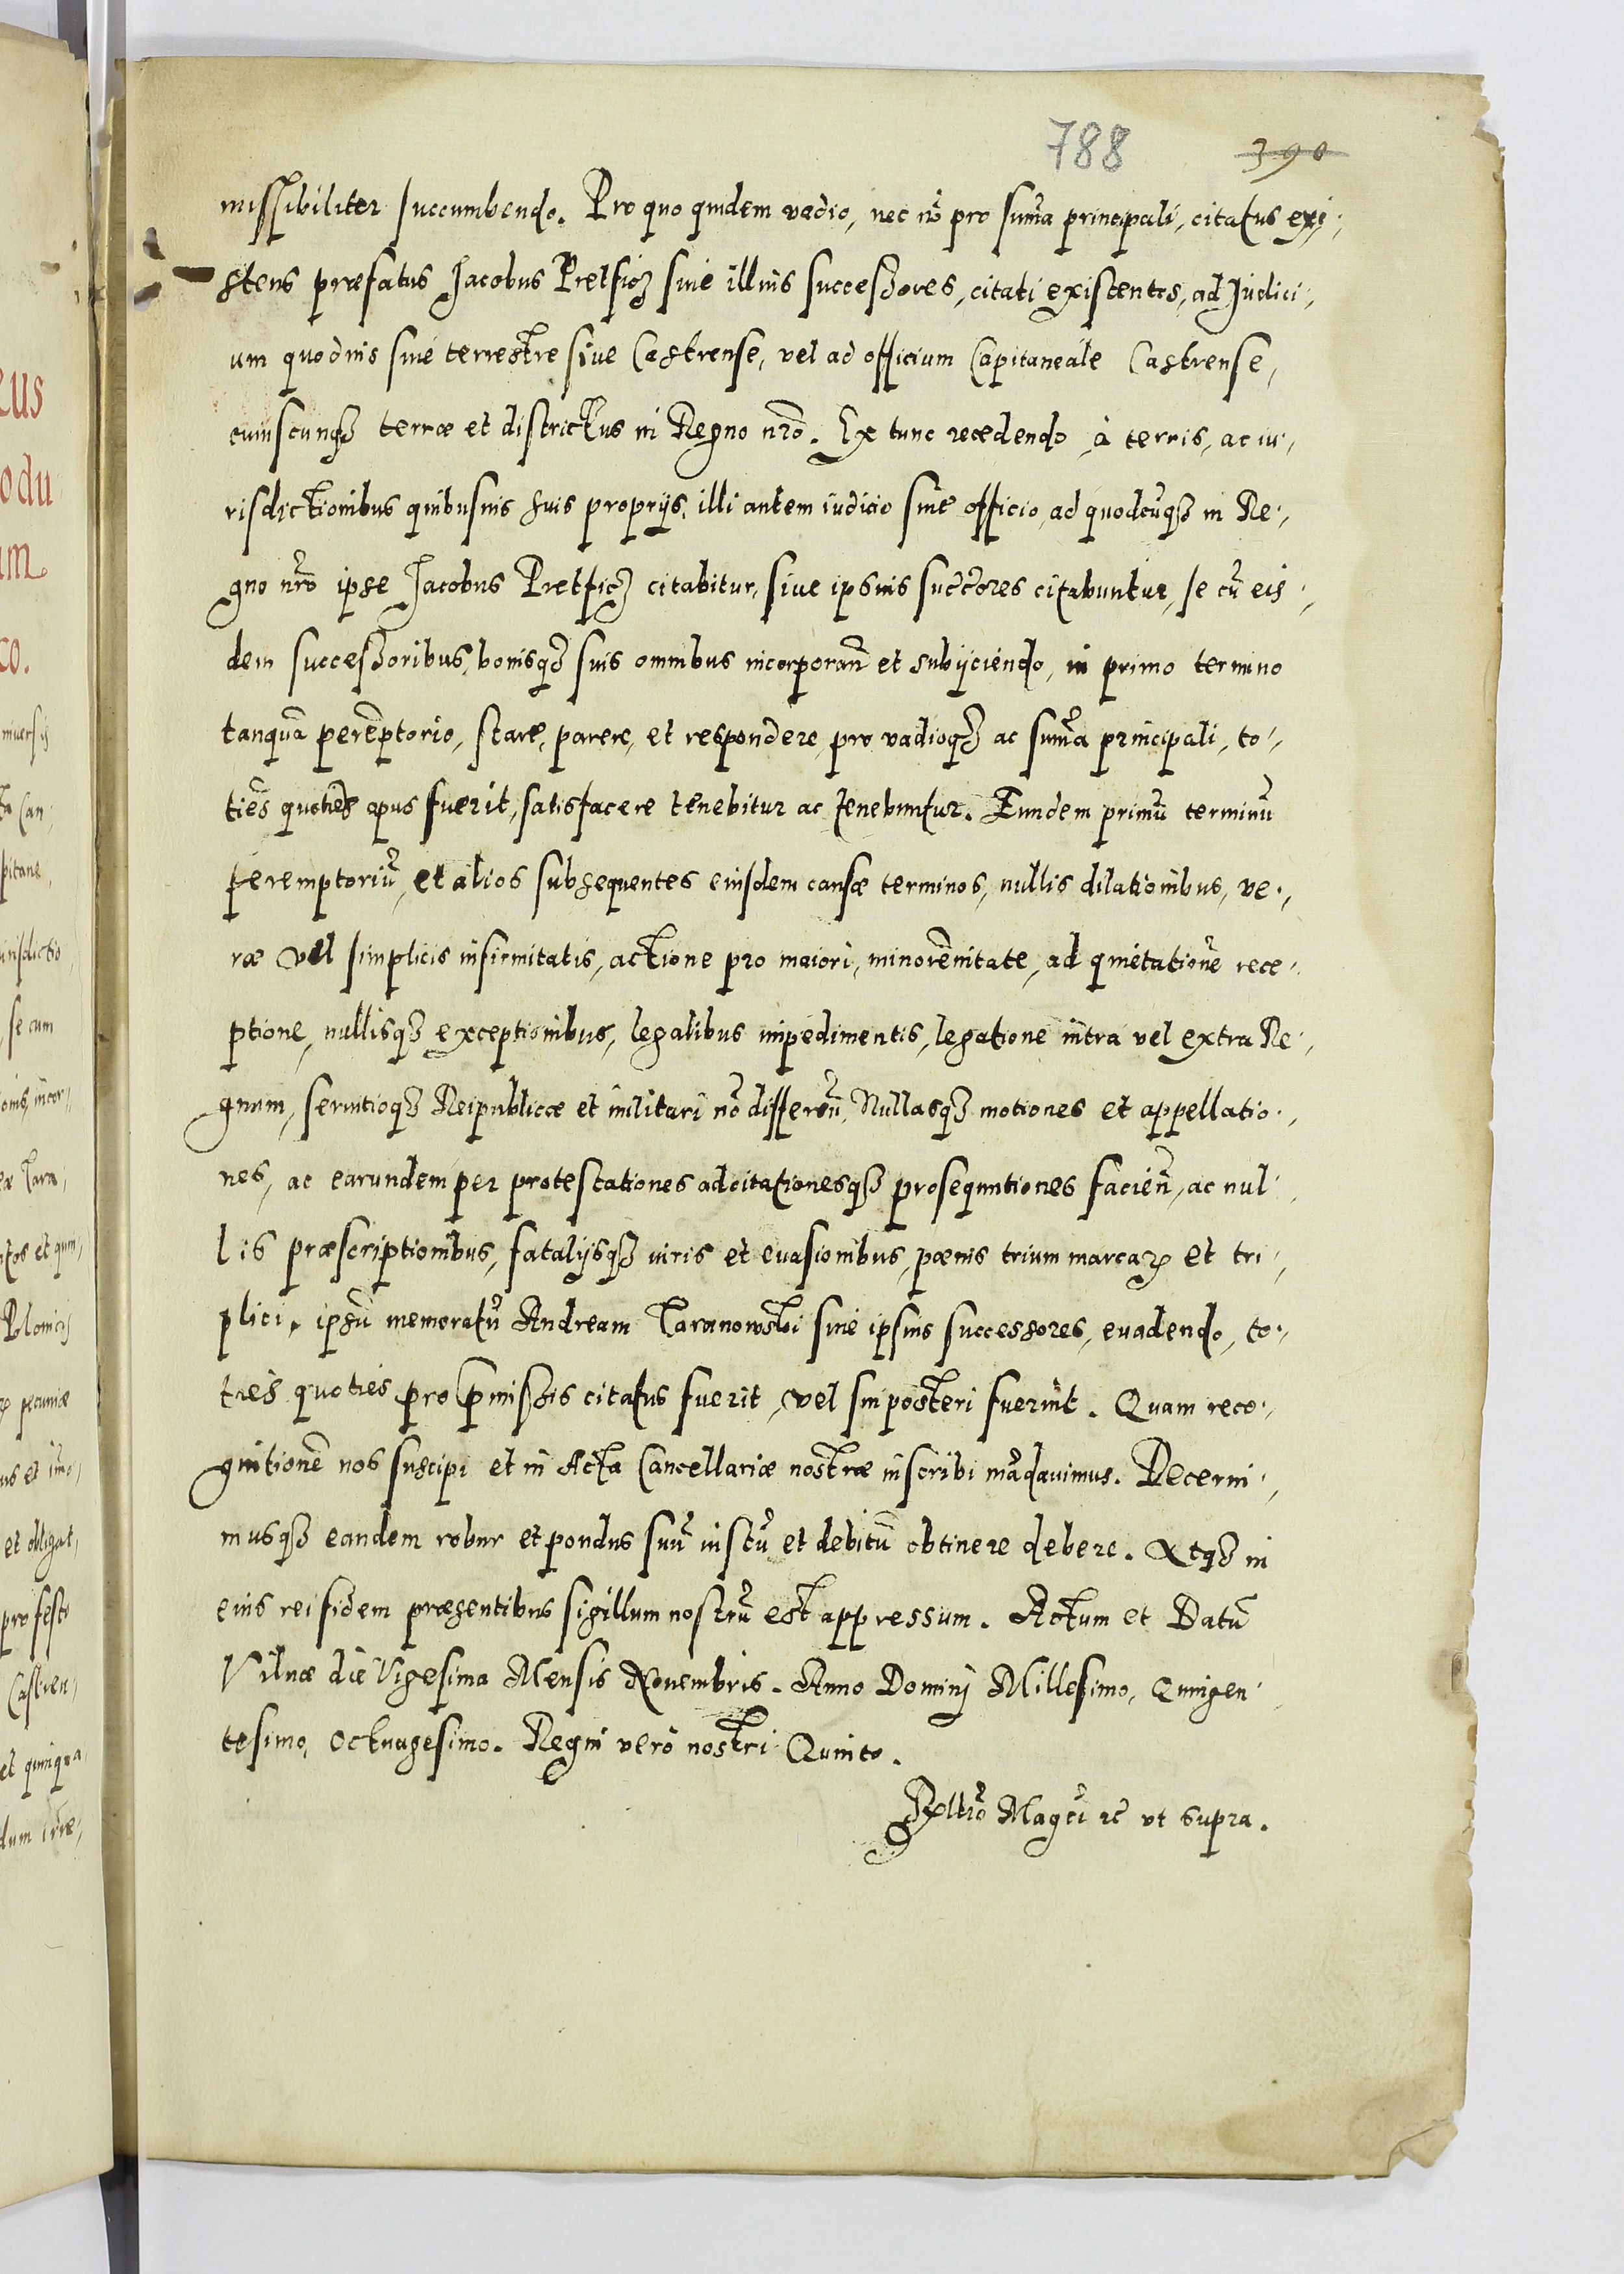 788 390
missibiliter succumbendo. Pro quo quidem vadio, nec nō pro sum̄a principali, citatus exi,
stens præfatus Jacobus Pretficz siue illius successores, citati existentes, ad Judici,
um quoduis siue terrestre siue Castrense, vel ad officium Capitaneale Castrense,
cuiuscunqȝ terræ et districtus in Regno nr̄o. Ex tunc recedendo à terris, ac iu,
risdictionibus quibusuis suis proprijs, illi autem iudicio siue officio, ad quodcūqȝ in Re,
gno nr̄o ipse Jacobus Pretficz citabitur, siue ipsius succ̄ores citabuntur, se cū eis,
dem successoribus, bonisqȝ suis omnibus incorporan̄ et subijciendo, in primo termino
tanquā perēptorio, stare, parere, et respondere, pro vadioqȝ ac sum̄a principali, to,
ties quoties opus fuerit, satisfacere tenebitur ac tenebuntur. Eundem primū terminū
peremptoriū, et alios subsequentes eiusdem causæ terminos, nullis dilationibus, ve,
ræ vel simplicis infirmitatis, actione pro maiori, minorēnitate, ad quietationē rece,
ptione, nullisqȝ exceptionibus, legalibus impedimentis, legatione intra vel extra Re,
gnum, seruitioqȝ Reipublicæ et militari nō differēn̄, Nullasqȝ motiones et appellatio,
nes, ac earundem per protestationes adcitationesqȝ prosequutiones facien̄, ac nul,
lis præscriptionibus, fatalijsqȝ iuris et euasionibus, pœnis trium marcaꝝ et tri,
plici, ipsū memoratū Andream Taranowski siue ipsius successores, euadendo, to,
ties quoties pro p̄missis citatus fuerit, vel sui posteri fuerint. Quam reco,
gnitionē nos suscipi et in Acta Cancellariæ nostræ inscribi mādauimus. Decerni,
musqȝ eandem robur et pondus suū iustū et debitū obtinere debere. Atqȝ in
eius rei fidem præsentibus sigillum nostrū est appressum. Actum et Datū
Vilnæ die Vigesima Mensis Nouembris. Anno Domini Millesimo, Quingen,
tesimo, Octuagesimo. Regni vero nostri Quinto.
Rel̄tio Magc̄i ꝛc̄ vt supra.